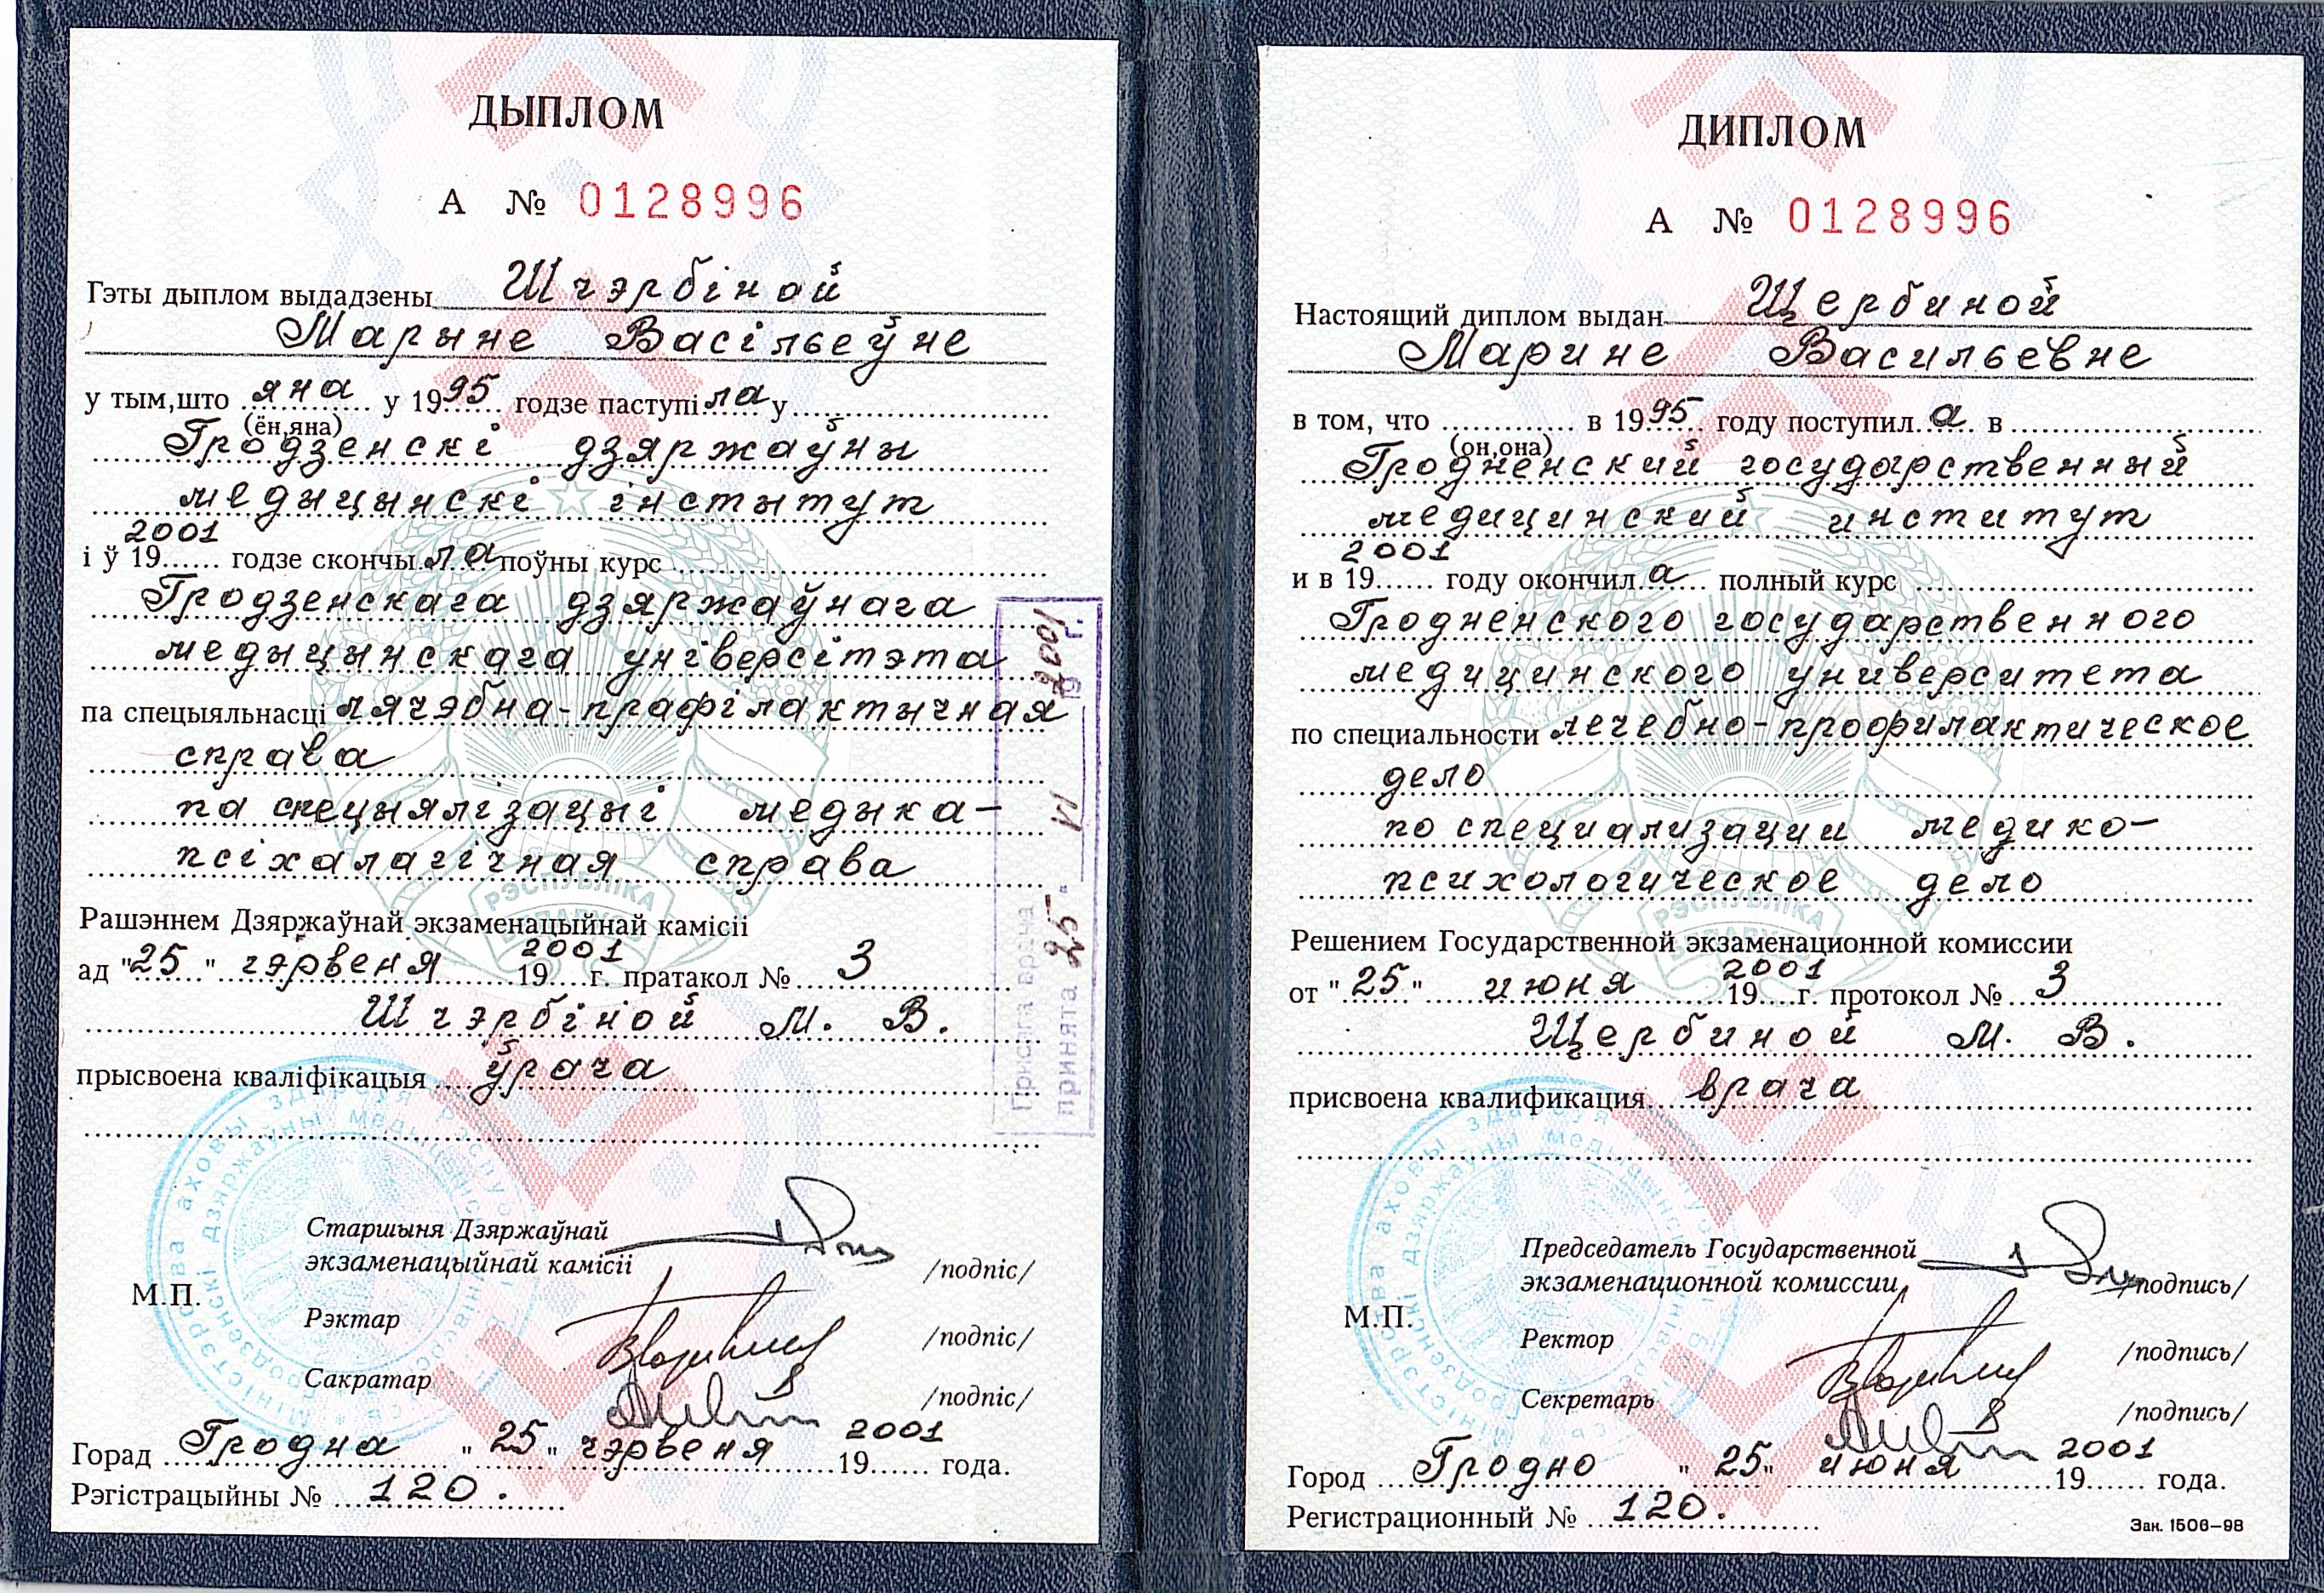 ДЫПЛОМ
А № 0128996
Гэты дыплом выдадзены Шчэрбіной
Марыне Васільеўне
у тым,што яна у 1995 годзе паступіла у
(ён,яна)
Гродзенскі дзяржаўны
медыцынскі інстытут
2001
і ў 19...... годзе скончыла поўны курс
Гродзенскага дзяржаўнага
медыцынскага універсітэта
па спецыяльнасці лячэбна-прафілактычная
справа
па спецыялізацыі медыка-
псіхалагічная справа
Рашэннем Дзяржаўнай экзаменацыйнай камісіі
2001
ад "25" чэрвеня 19....г. пратакол № 3
Шчэрбіной М. В.
прысвоена кваліфікацыя ўрача
Старшыня Дзяржаўнай
экзаменацыйнай камісіі /подпіс/
М.П.
Рэктар /подпіс/
Сакратар /подпіс/
2001
Горад Гродна "25" чэрвеня 19...... года.
Рэгістрацыйны № 120.
Присяга врача
принята "25" VI 2001 19 г.
РЭСПУБЛІКА
БЕЛАРУСЬ
ДИПЛОМ
А № 0128996
Настоящий диплом выдан Щербиной
Марине Васильевне
в том, что ............ в 1995 году поступила в
(он,она)
Гродненский государственный
медицинский институт
2001
и в 19...... году окончила полный курс
Гродненского государственного
медицинского университета
по специальности лечебно-профилактическое
дело
по специализации медико-
психологическое дело
РЭСПУБЛІКА
Решением Государственной экзаменационной комиссии
2001
от "25" июня 19....г. протокол № 3
Щербиной М. В.
присвоена квалификация врача
Председатель Государственной
экзаменационной комиссии /подпись/
М.П.
Ректор /подпись/
Секретарь /подпись/
2001
Город Гродно "25" июня 19...... года.
Регистрационный № 120.
Зак. 1506–98